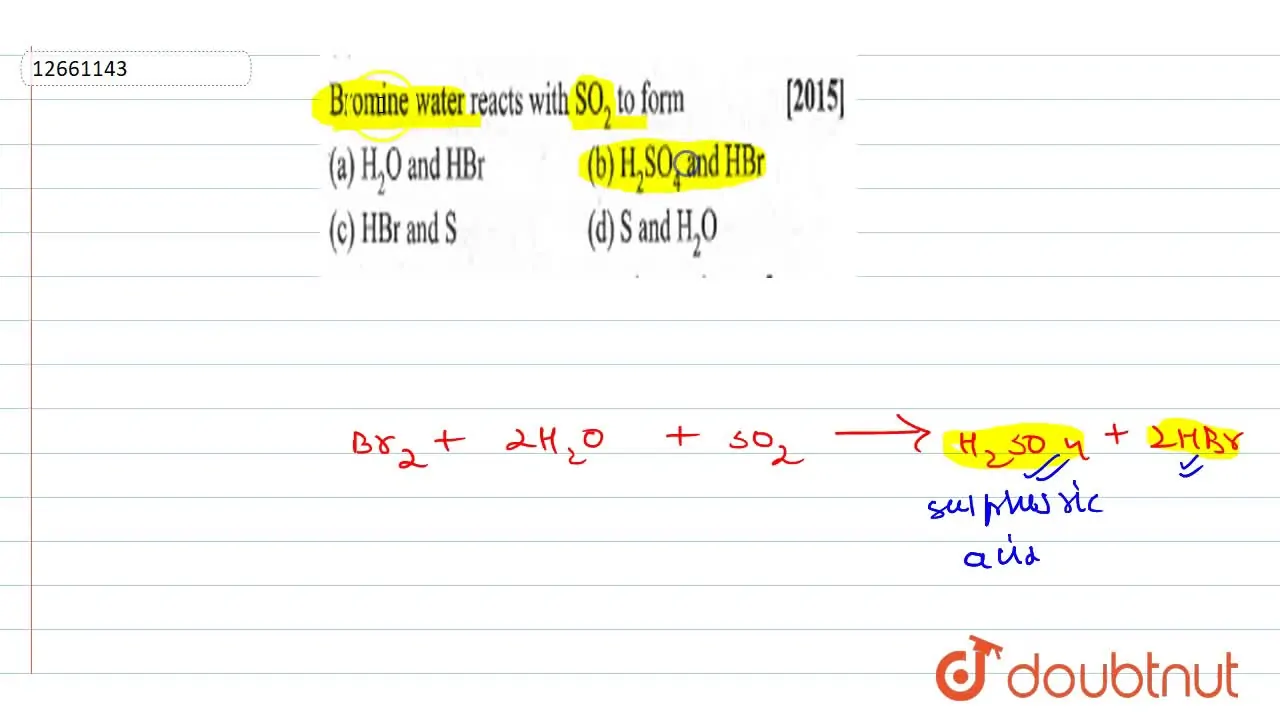 12661143
Bromine water reacts with SO₂ to form [2015]
(a) H₂O and HBr (b) H₂SO₄ and HBr
(c) HBr and S (d) S and H₂O
Br₂ + 2H₂O + SO₂ → H₂SO₄ + 2HBr
sulphuric
acid
doubtnut